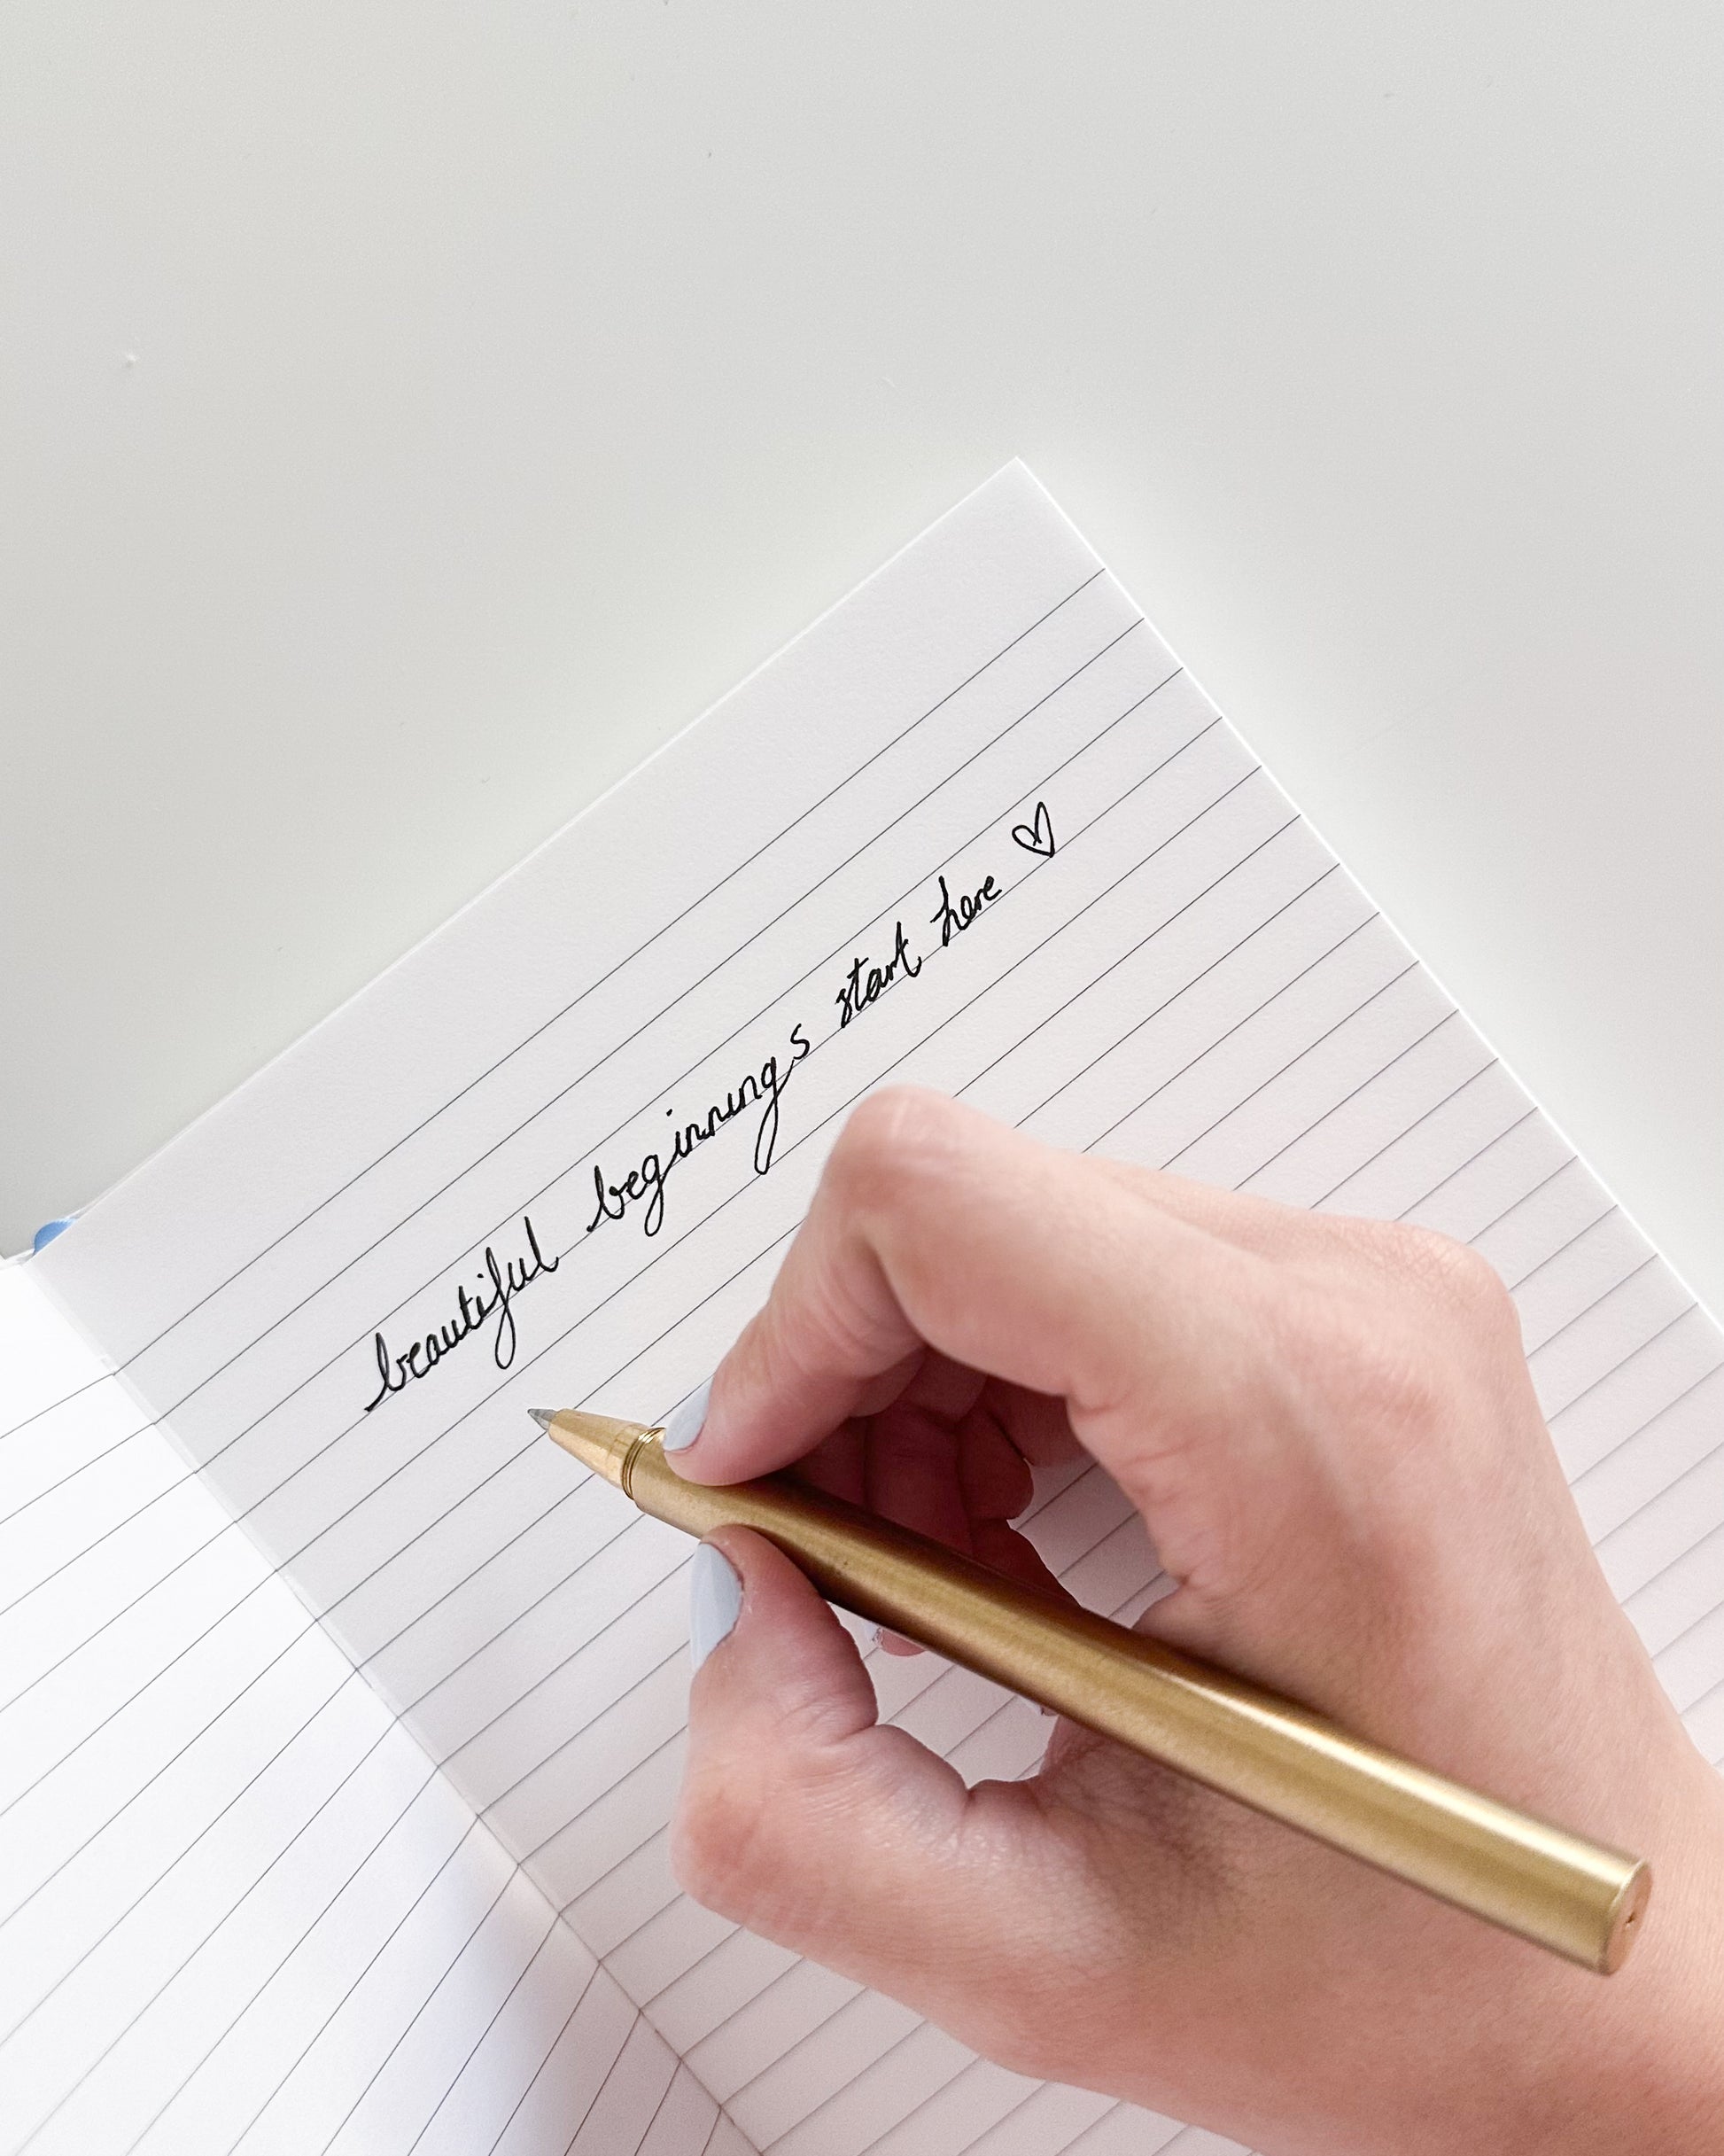 beautiful beginnings start here ♡